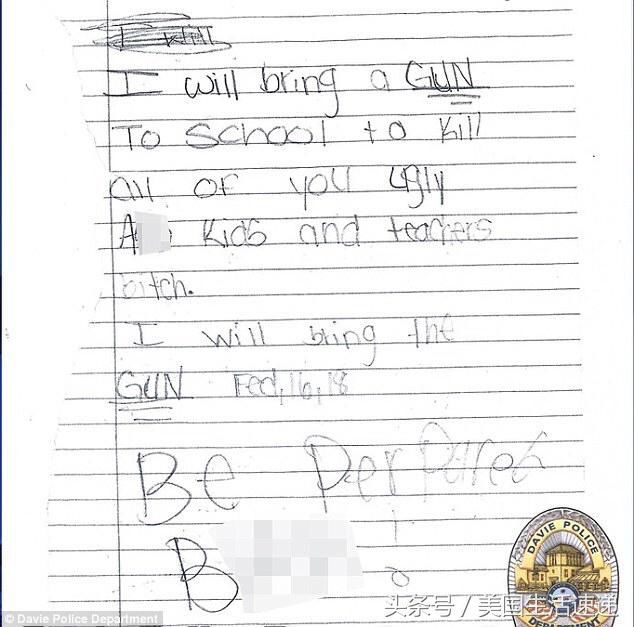 I will
I will bring a GUN
To School to kill
all of you ugly
A Kids and teachers
bitch.
I will bring the
GUN Fed,16,18
Be perpared
B
DAVIE POLICE
头条号 / 美国生活速递
© Davie Police Department